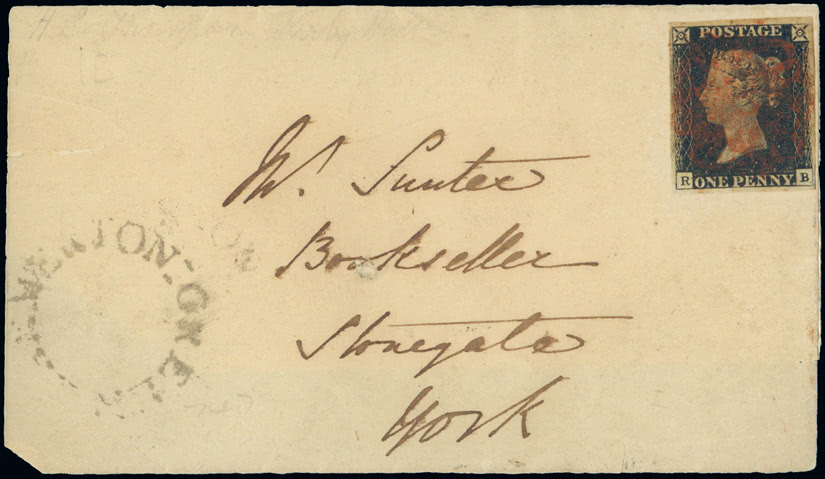 POSTAGE
ONE PENNY
R B
Mr. Sunter
Bookseller
Stonegate
York